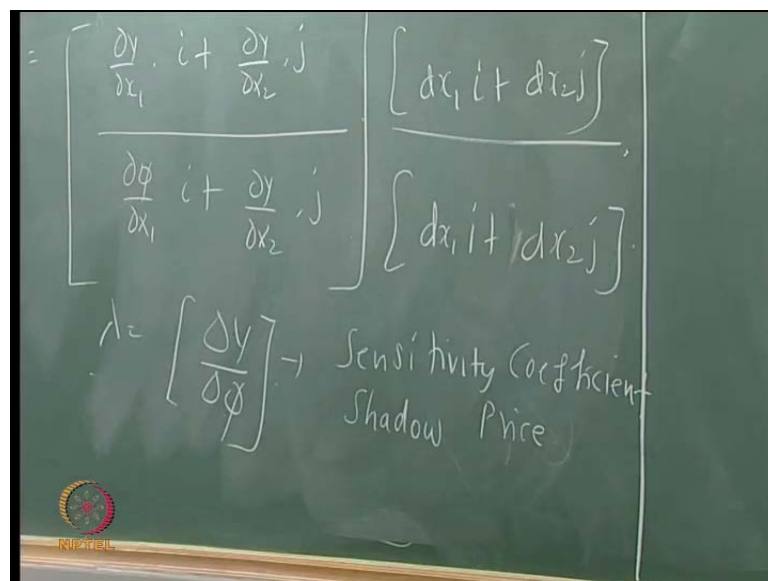 = [ ∂y/∂x₁ . i + ∂y/∂x₂ . j [ dx₁ i + dx₂ j ]
∂φ/∂x₁ i + ∂y/∂x₂ . j ] [ dx₁ i + dx₂ j ] .
λ = [ Δy/Δφ ] → Sensitivity Coefficient
Shadow Price
NPTEL